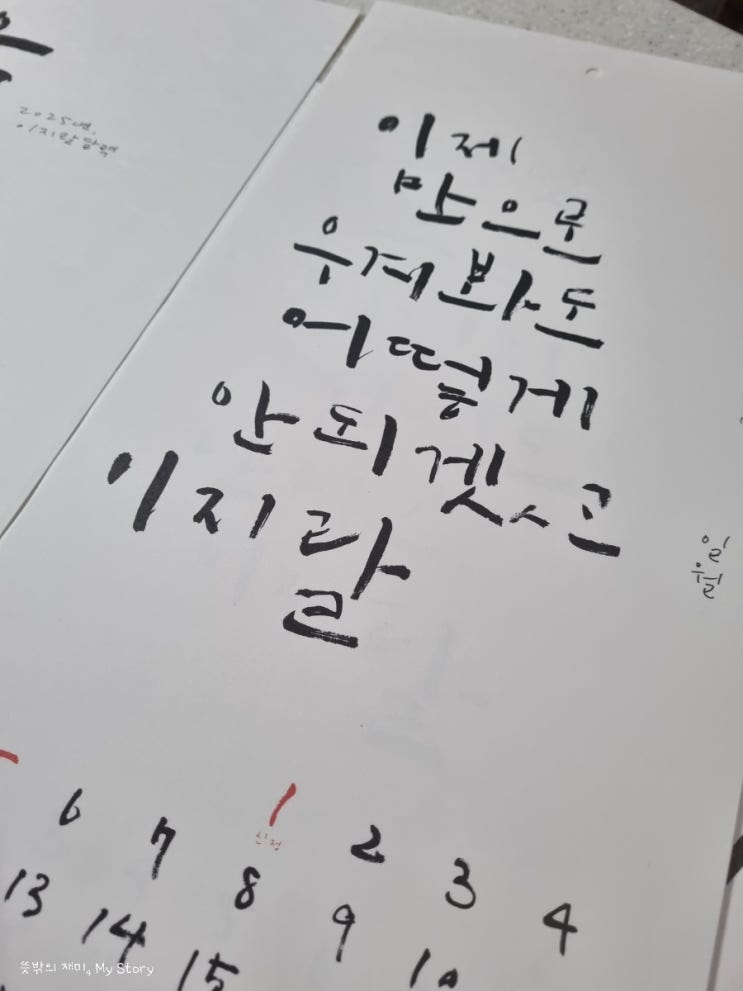 2025년,
이지랄달력
이제
만으로
우겨봐도
어떻게
안되겠고
이지랄
일
월
1 2 3 4
신정
6 7 8 9 10
13 14 15
뜻밖의 재미, My Story